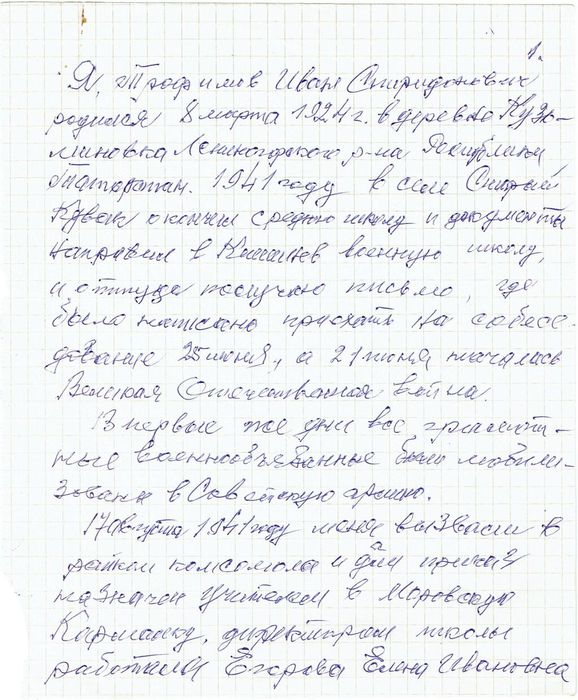 1.
Я, Трофимов Иван Спиридонович
родился 8 марта 1924 г. в деревне Кузь-
миновка Лениногорского р-на Республики
Татарстан. 1941 году в селе Старый
Кувак окончил среднюю школу и документы
направил в Кишинев военную школу,
и оттуда получаю письмо, где
было написано приехать на собесе-
дование 25 июня, а 21 июня началась
Великая Отечественная война.
В первые же дни все грамот-
ные военнообязанные были мобили-
зованы в Советскую армию.
17 августа 1941 году меня вызвали в
райком комсомола и дали приказ
назначен учителем в
Кармалку, директором школы
работала Егорова Елена Ивановна